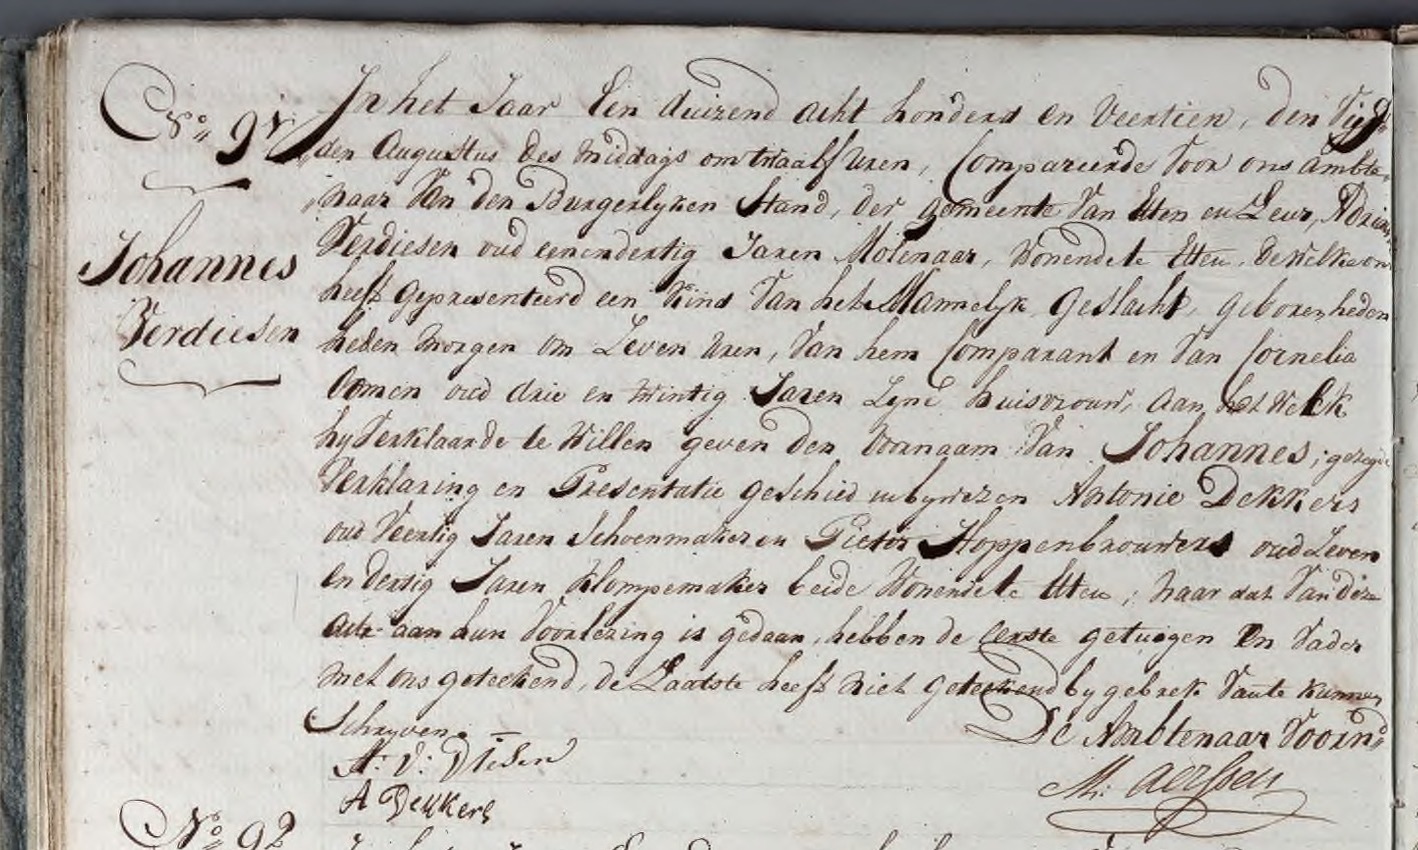 No. 91
In het Jaar Een duizend acht honderd en veertien, den Vijf
den Augustus des middags om twaalf uren, Compareerde voor ons ambte-
naar Van den Burgerlyken Stand, der gemeente Van Etten en Leur, Adriaan
Verdiesen oud eenendertig Jaren Molenaar, Wonende te Etten, dewelke ons
heeft gepresenteerd een Kind Van het Mannelyk Geslacht, geboren heden
Johannes
Verdiesen
heden morgen om Zeven uren, Van hem Comparant en Van Cornelia
Oomen oud drie en twintig Jaren Zyne huisvrouw, aan het welk
hy Verklaarde te Willen geven den Voornaam Van Johannes; gezegde
Verklaring en Presentatie geschied in bywezen Antonie Dekkers
oud Veertig Jaren Schoenmaker en Pieter Hoppenbrouwers oud Zeven
en dertig Jaren Klompemaker beide Wonende te Etten; naar dat Van deze
acte aan hun Voorlezing is gedaan, hebben de eerste getuigen En Vader
met ons geteekend, de Laatste heeft niet geteekend by gebrek Vante kunnen
Schryven.
De Ambtenaar Voornd
A: V: Diesen
A Dekkers
M: Aerssen
No. 92